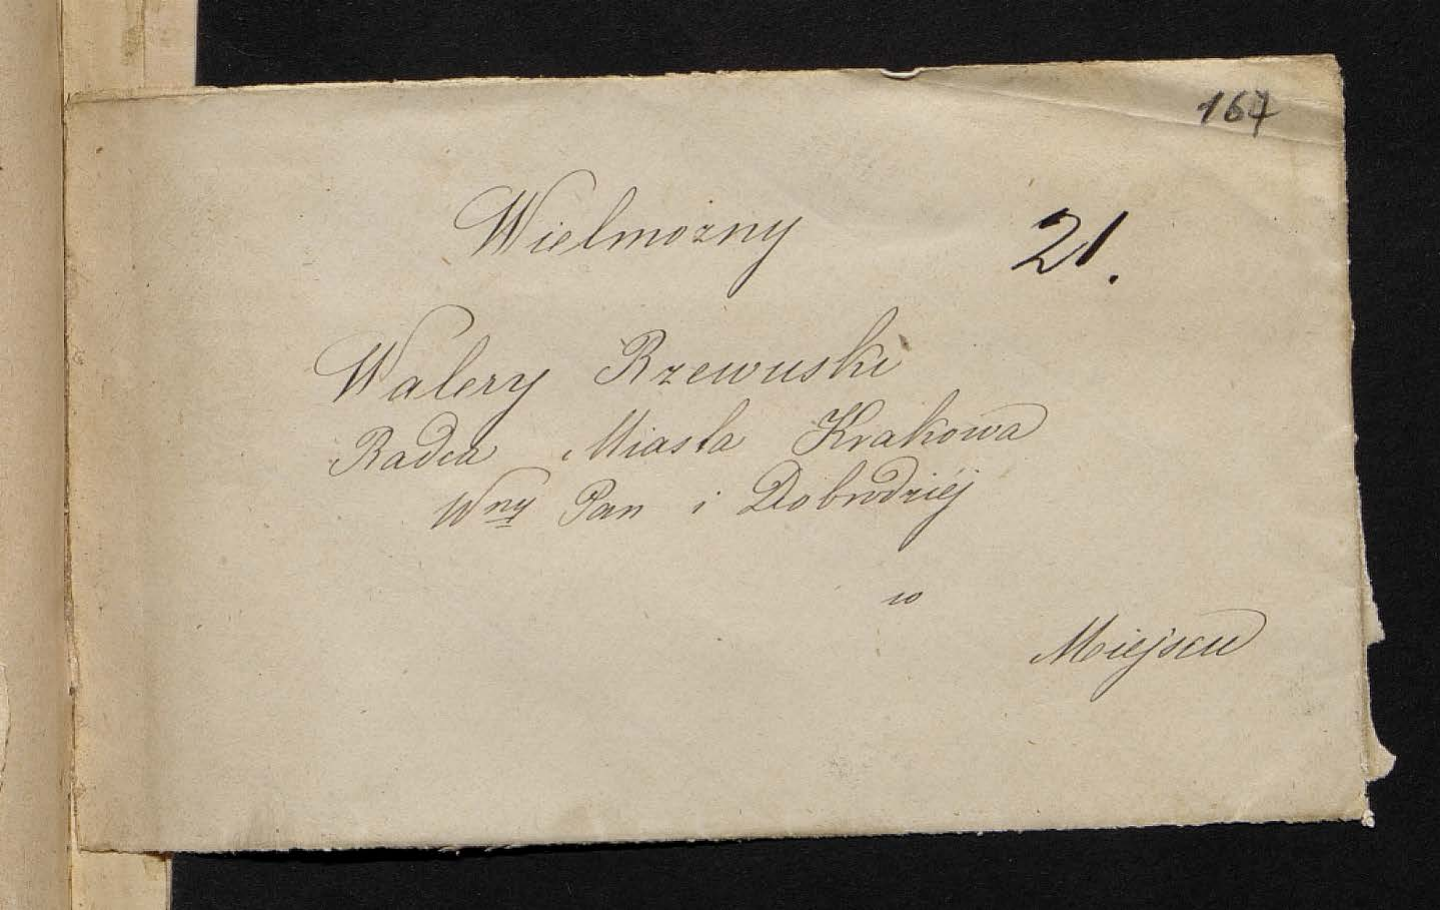 167
Wielmożny
21.
Walery Rzewuski
Radca Miasta Krakowa
Wny Pan i Dobrodziéj
w
Miejscu